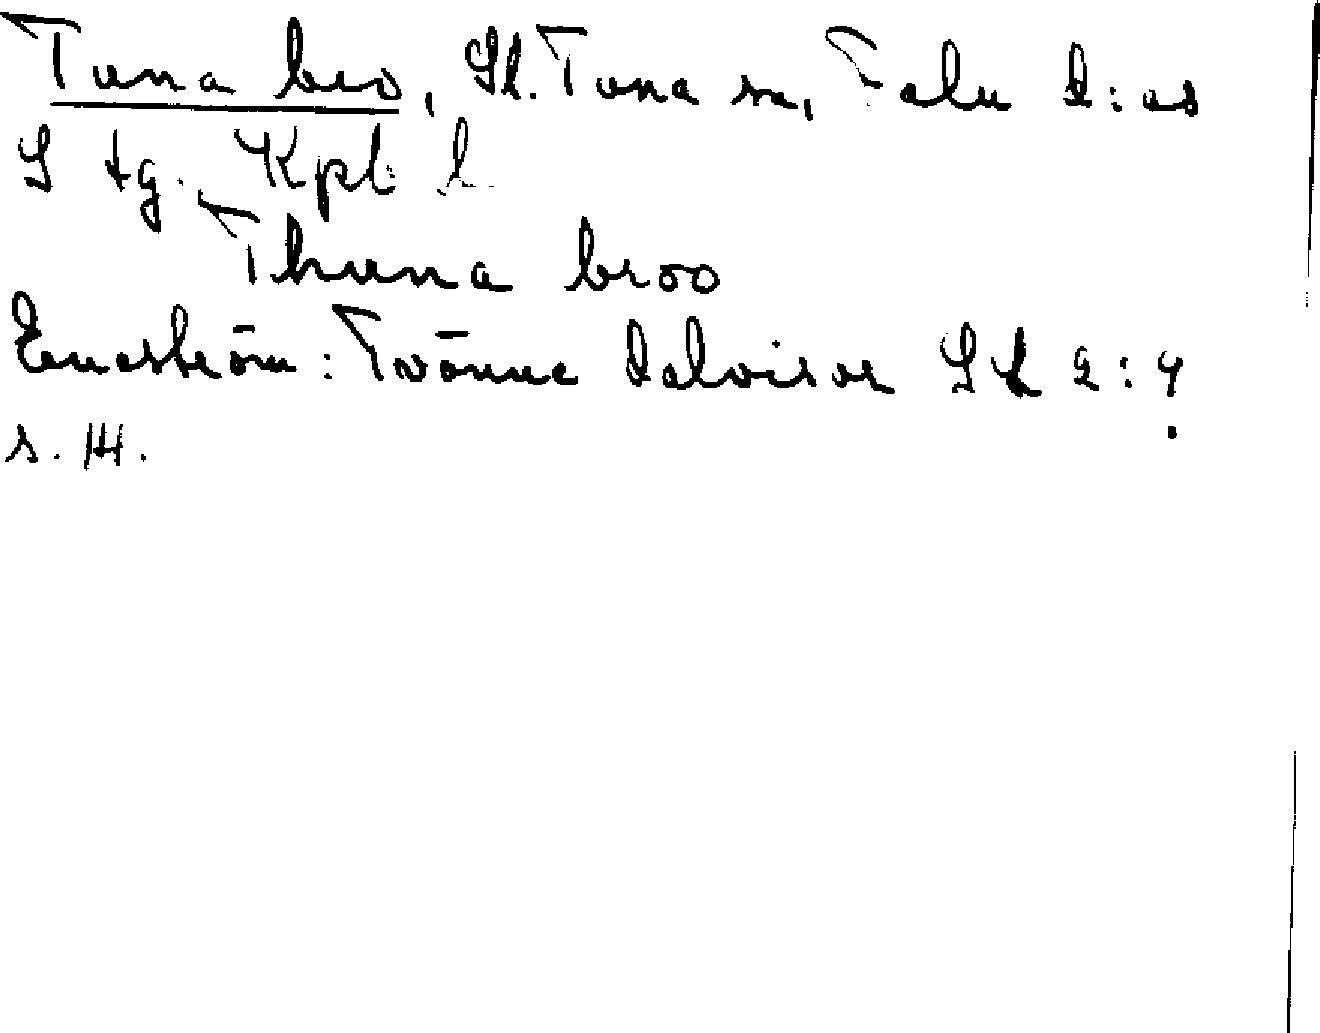 Tuna bro, St. Tuna sn, Falu d:as
S tg. Kpb l.
Thuna broo
Eneström: Tvönne dalvisor SL 2:9
s. 14.